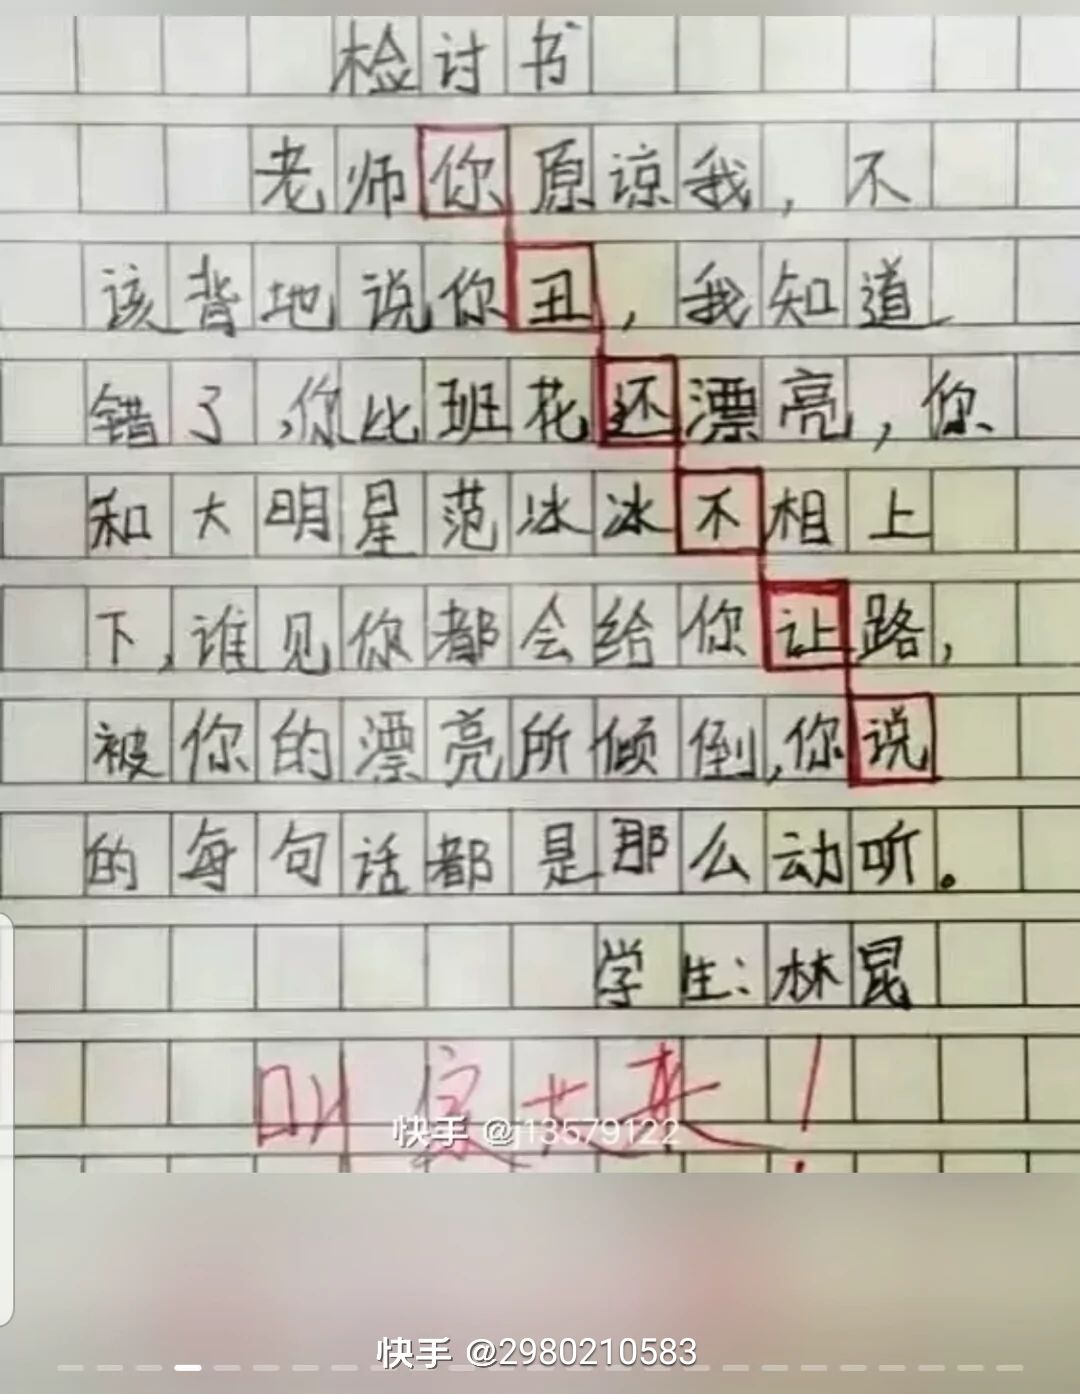 检讨书
老师你原谅我，不
该背地说你丑，我知道
错了，你比班花还漂亮，你
和大明星范冰冰不相上
下，谁见你都会给你让路，
被你的漂亮所倾倒，你说
的每句话都是那么动听。
学生：林昆
叫家长来！
快手 @j13579122
快手 @2980210583